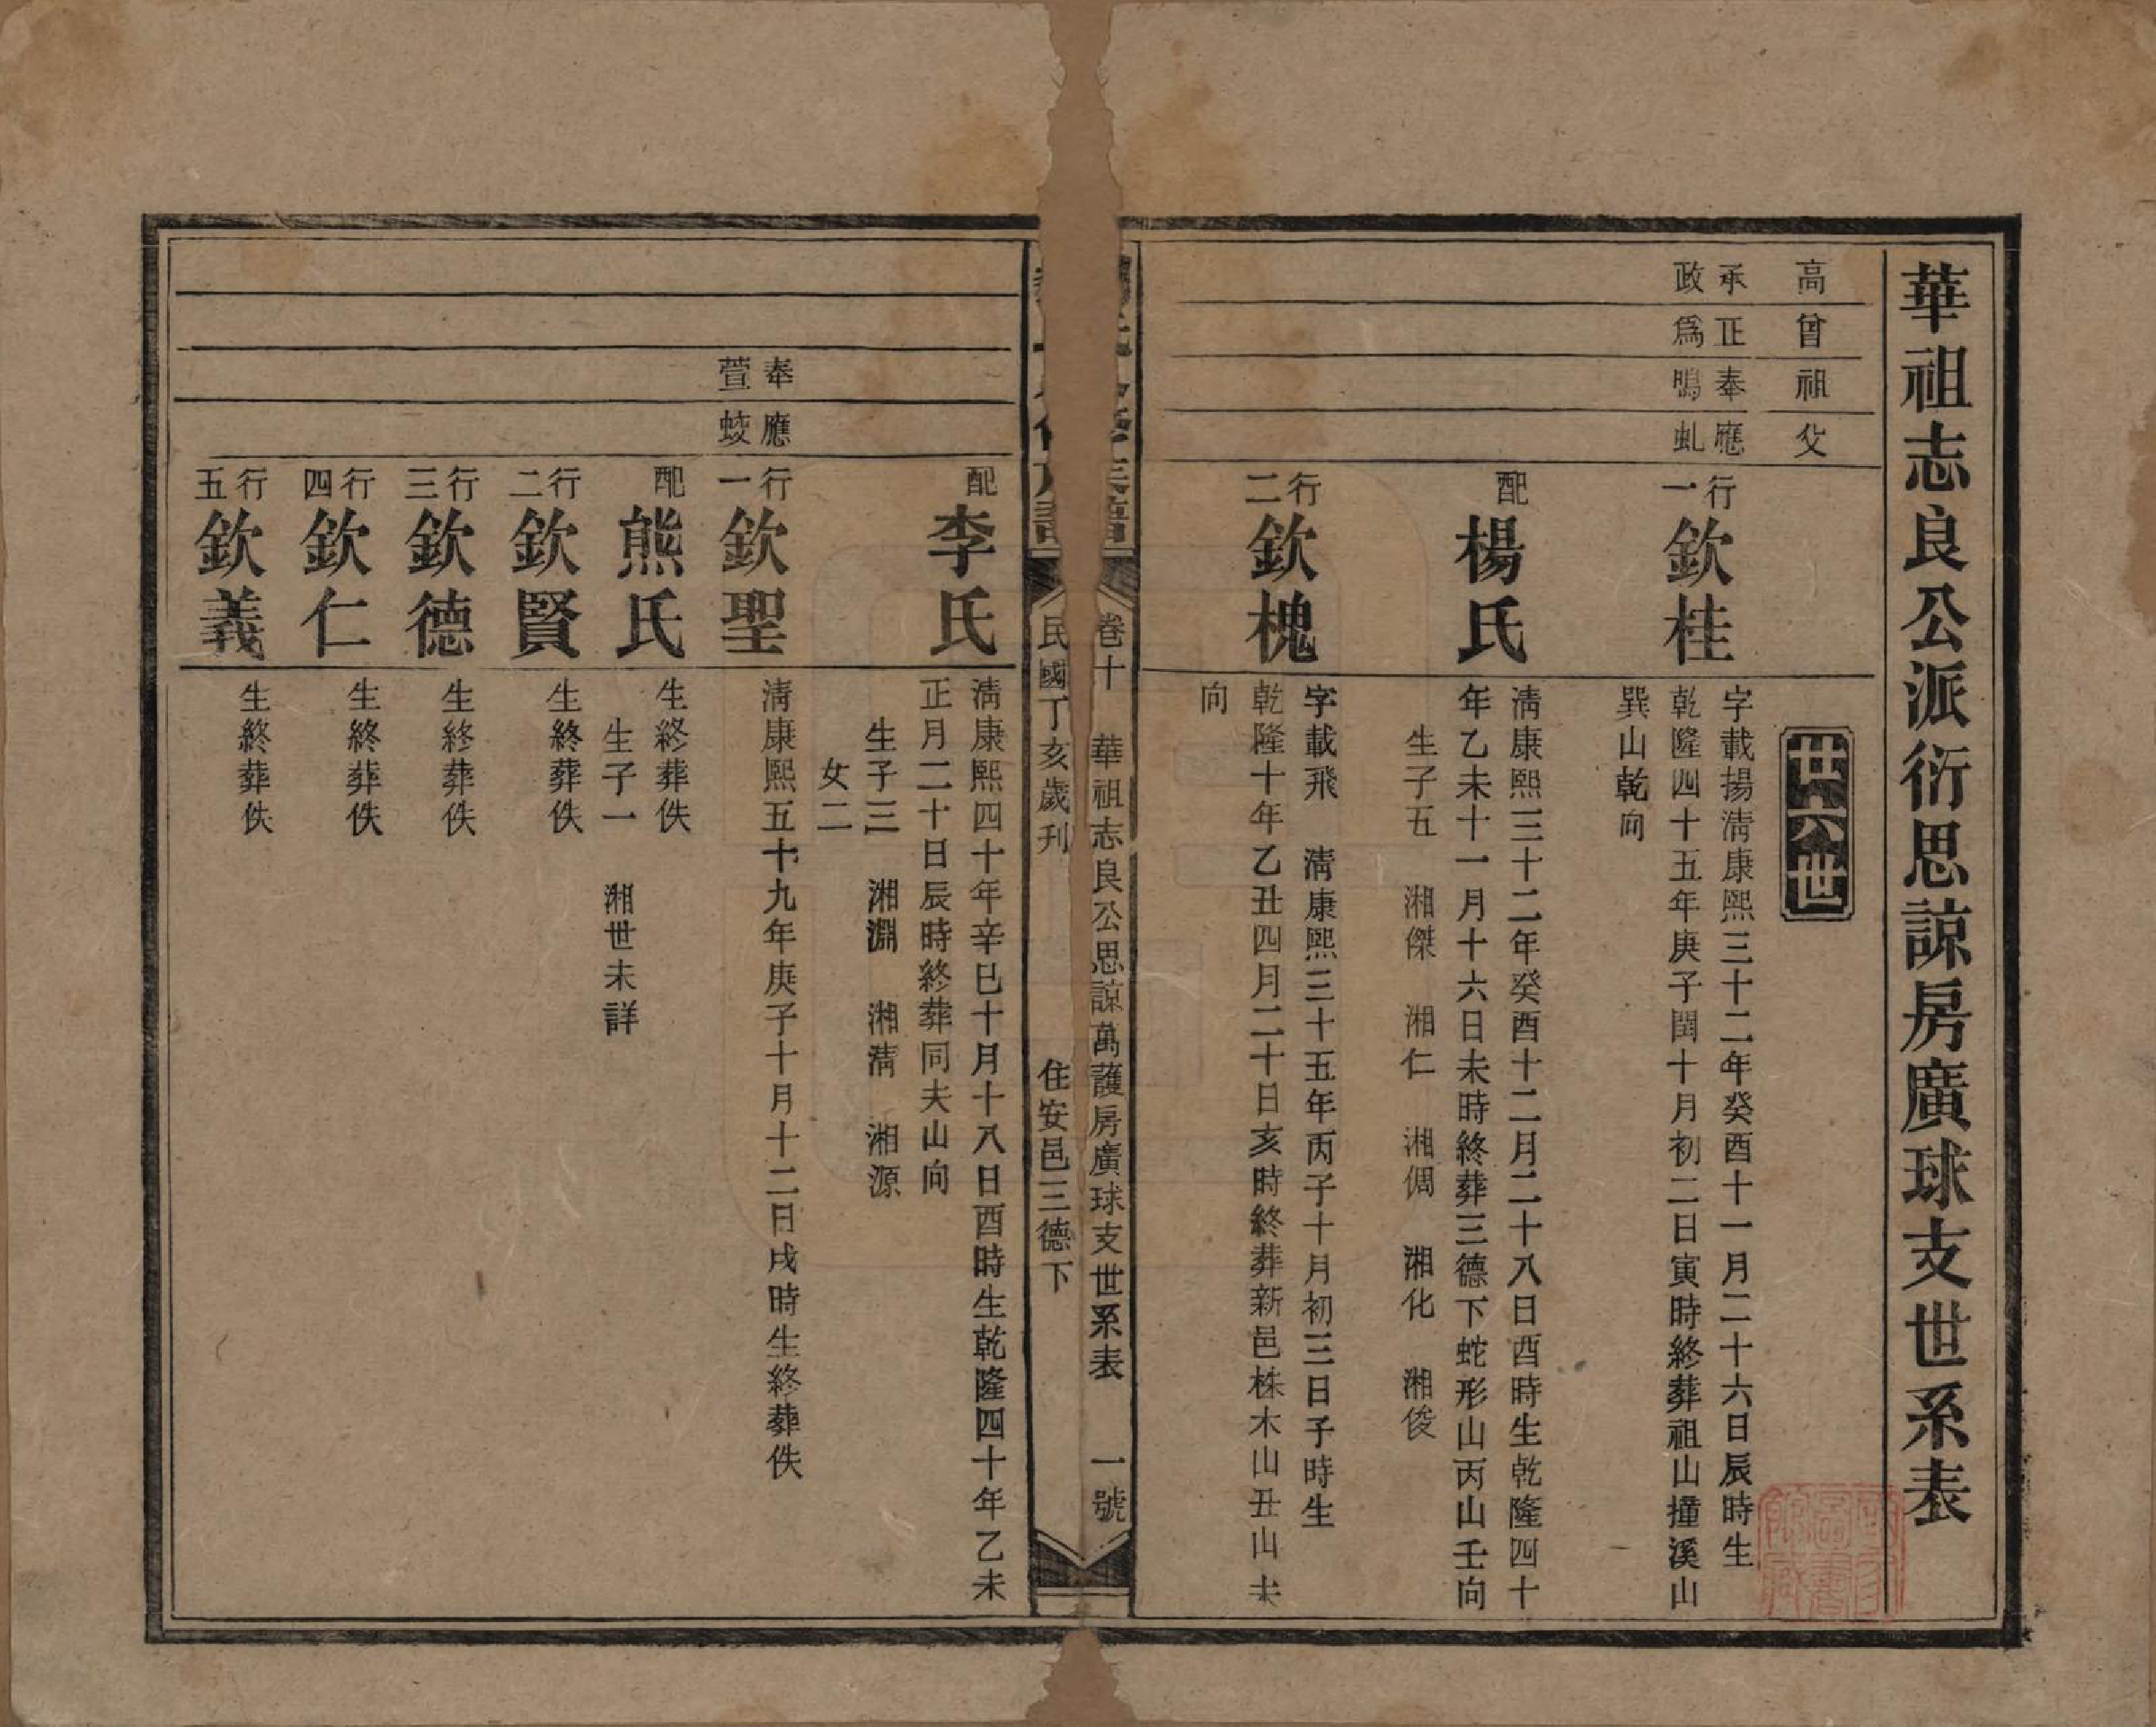 華祖志良公派衍思諒房廣球支世系表
高
曾
祖
父
廿六世
承政
正爲
奉鳴
應虬
行一
欽桂
字載揚清康熙三十二年癸酉十一月二十六日辰時生
乾隆四十五年庚子閏十月初二日寅時終葬祖山撞溪山
巽山乾向
配
楊氏
清康熙三十二年癸酉十二月二十八日酉時生乾隆四十
年乙未十一月十六日未時終葬三德下蛇形山丙山壬向
生子五 湘傑 湘仁 湘倜 湘化 湘俊
行二
欽槐
字載飛 清康熙三十五年丙子十月初三日子時生
乾隆十年乙丑四月二十日亥時終葬新邑株木山丑山未
向
卷十 華祖志良公思諒萬護房廣球支世系表 一號
民國丁亥歲刊 住安邑三德下
配
李氏
清康熙四十年辛巳十月十八日酉時生乾隆四十年乙未
正月二十日辰時終葬同夫山向
生子三 湘淵 湘清 湘源
女二
奉萱
應蛟
行一
欽聖
清康熙五十九年庚子十月十二日戌時生終葬佚
配
熊氏
生終葬佚
生子一 湘世未詳
行二
欽賢
生終葬佚
行三
欽德
生終葬佚
行四
欽仁
生終葬佚
行五
欽義
生終葬佚